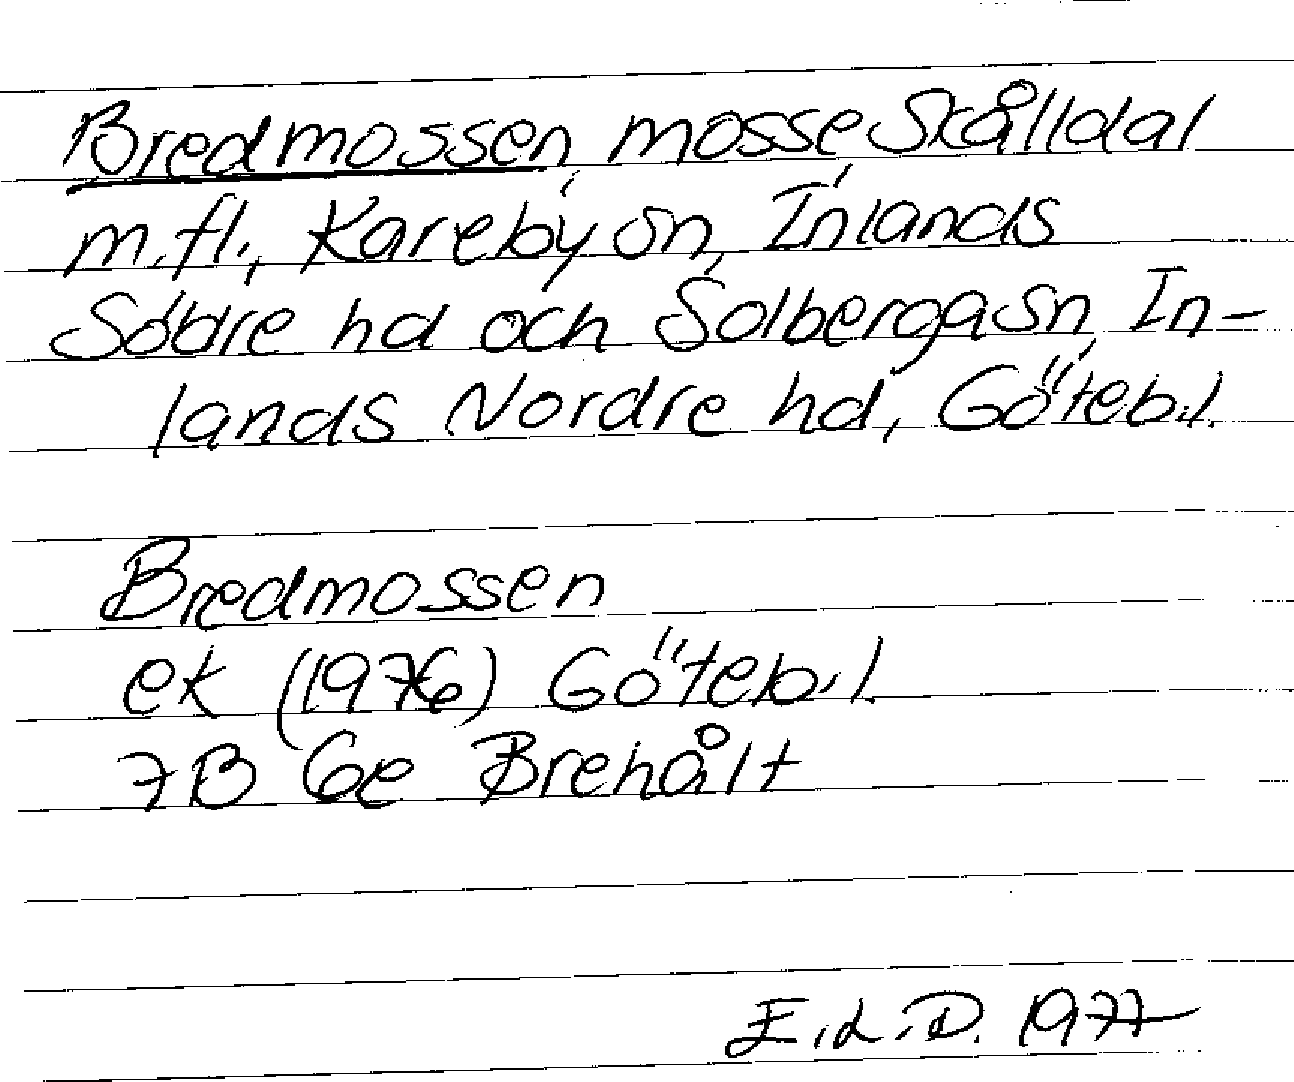 Bredmossen, mosse Skålldal
m.fl., Kareby sn, Inlands
Södre hd och Solberga sn, In-
lands Nordre hd, Göteb.l.
Bredmossen
ek (1976) Göteb.l.
7B 6e Brehålt
E.d.D. 1977